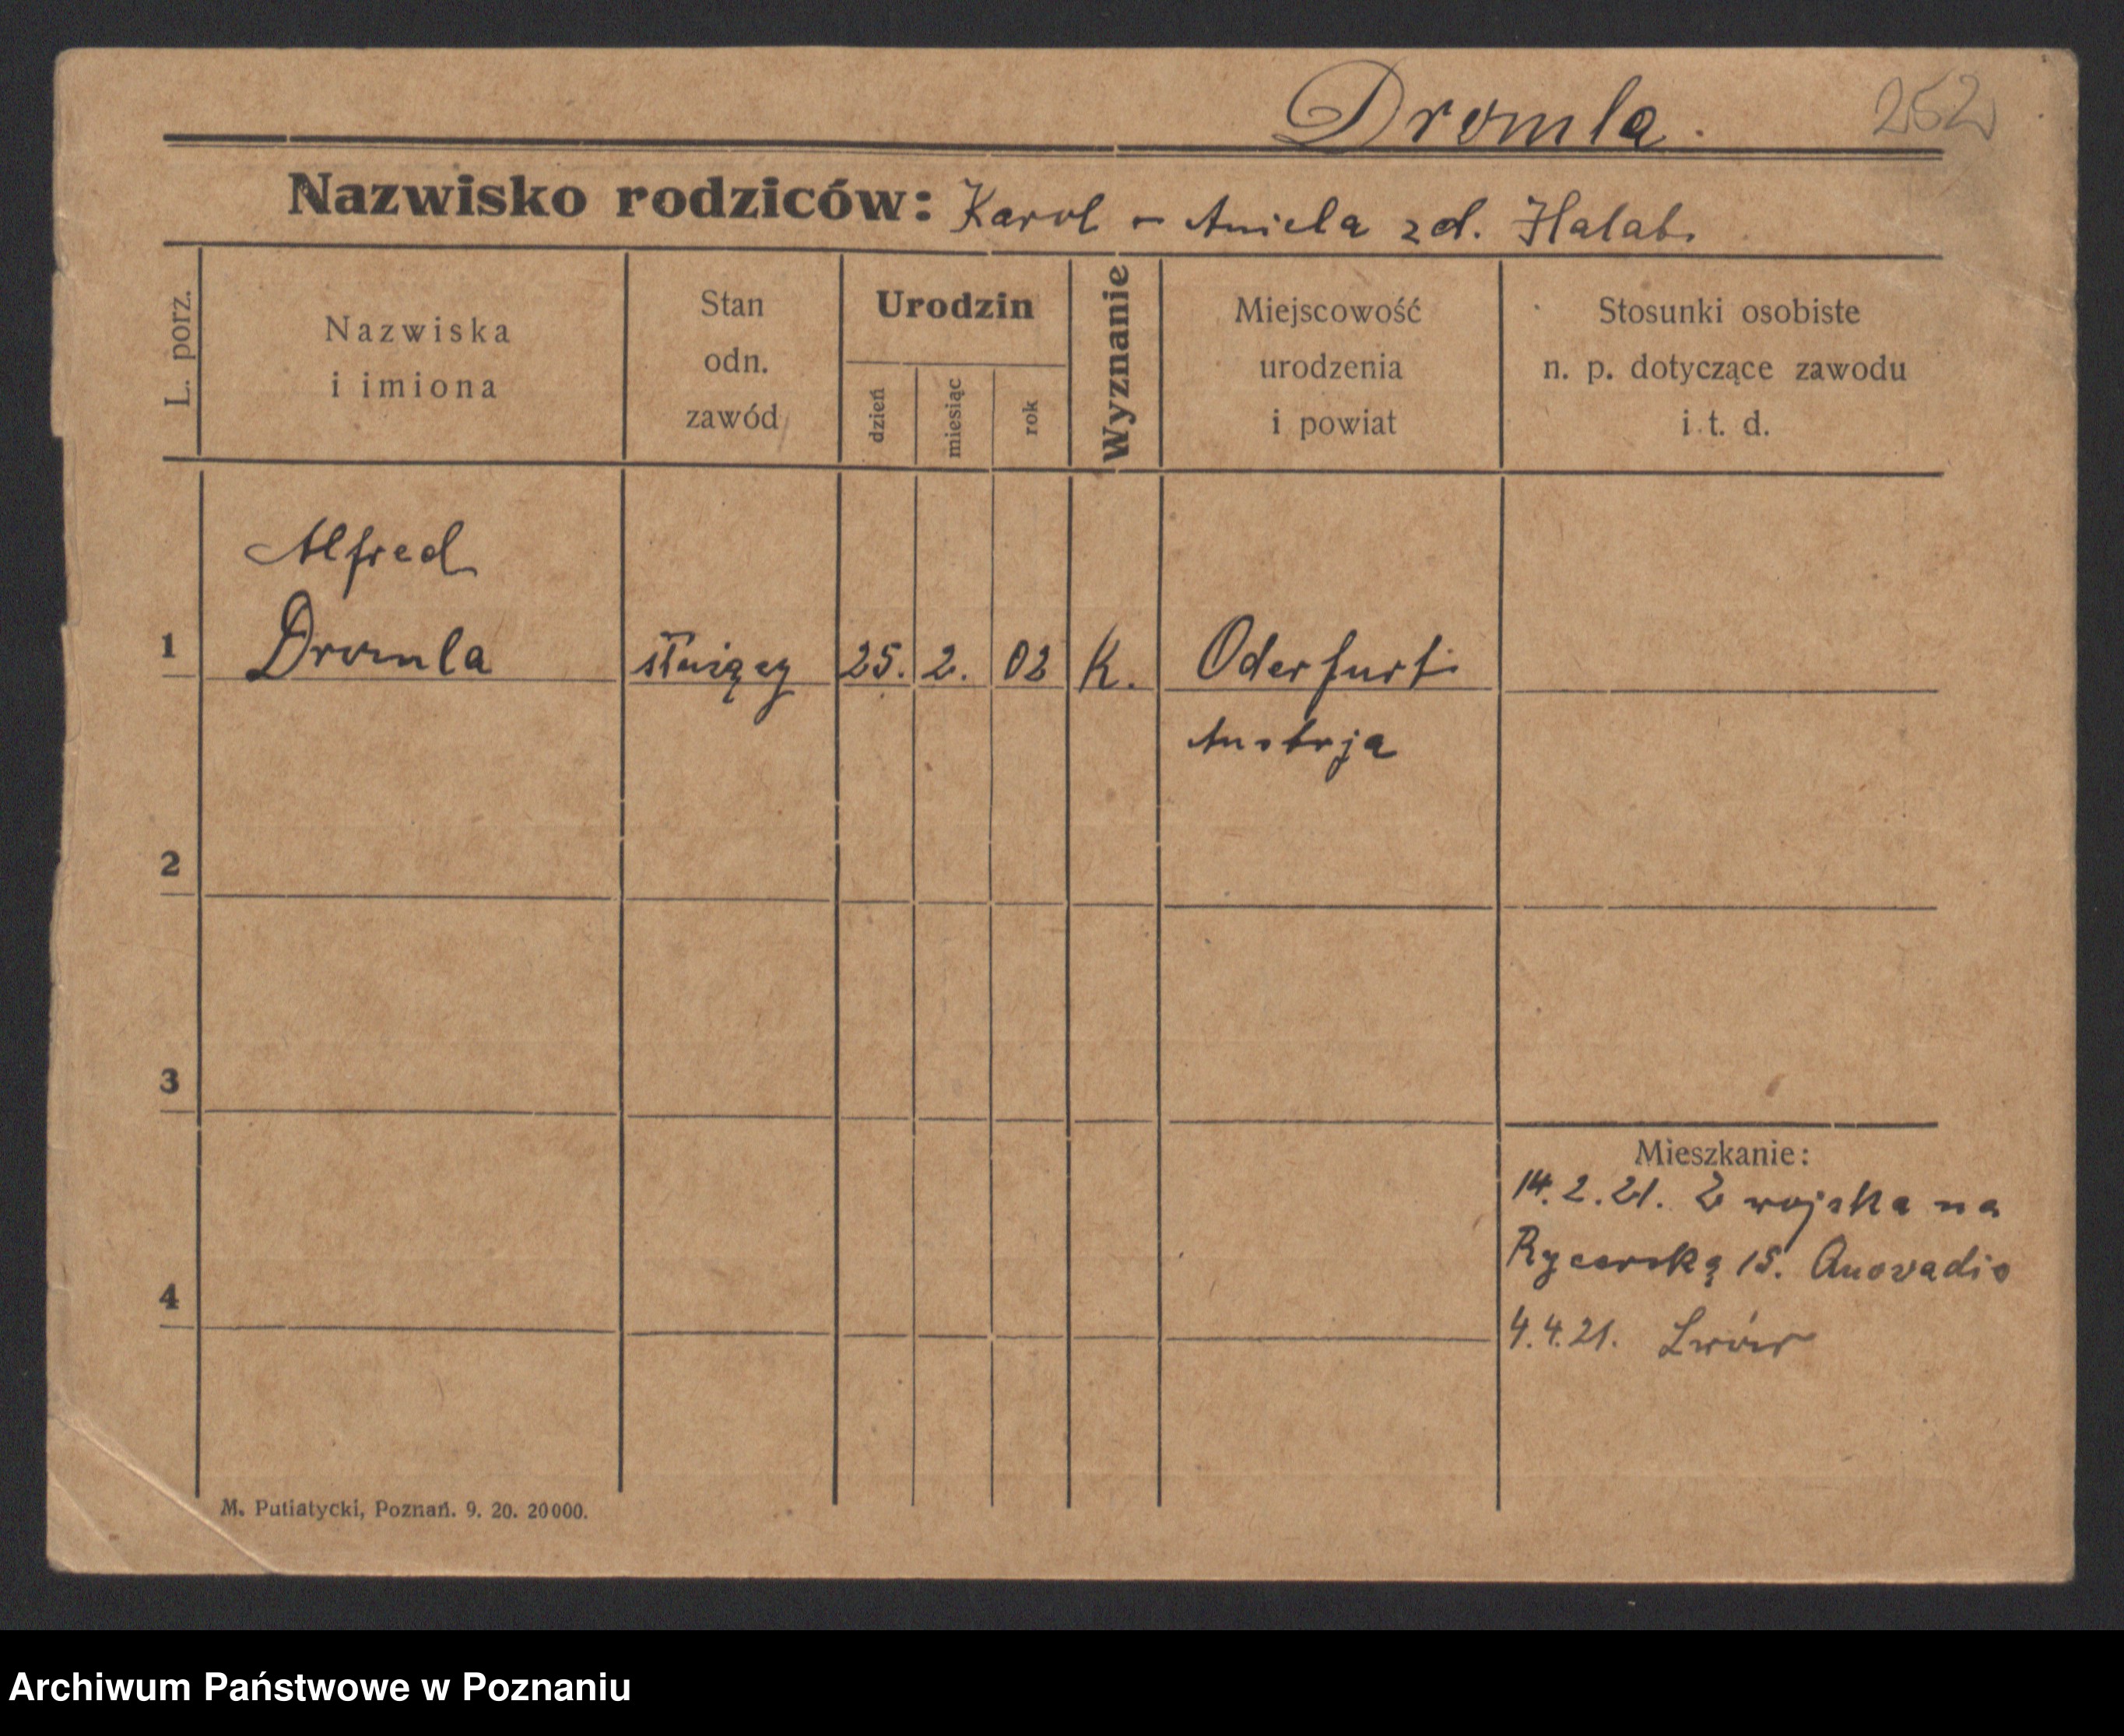 Dromla.
252
Nazwisko rodziców: Karol - Aniela zd. Halab.
L. porz.
Nazwiska
i imiona
Stan
odn.
zawód
Urodzin
dzień
miesiąc
rok
Wyznanie
Miejscowość
urodzenia
i powiat
Stosunki osobiste
n. p. dotyczące zawodu
i t. d.
Alfred
1 Dromla służący 25. 2. 02 K. Oderfurt
Austrja
2
3
4
Mieszkanie:
14.2.21. Z wojska na
Rycerską 15.
4.4.21. Lwów
M. Putiatycki, Poznań. 9. 20. 20000.
Archiwum Państwowe w Poznaniu